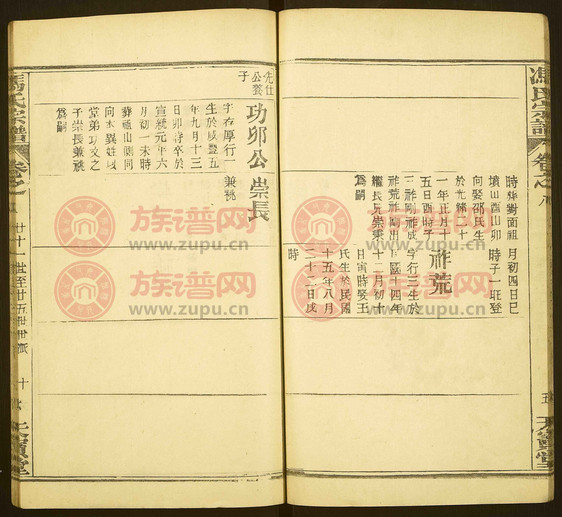 馮氏宗譜
卷之八
五
時縣對面祖
墳山酉山卯
向娶邵氏生
於光緒二十
一年正月十
五日酉時子
三祚剛祚咸
祚荒祚剛出
繼長兄崇東
為嗣
月初四日巳
時子一班登
祚荒
字行三生於
民國十四年
十二月初十
日寅時娶王
氏生於民國
十五年八月
二十二日戌
時
先仕公長子
功卯公
字在厚行一
生於咸豐五
年九月十三
日卯時卒於
宣統元年六
月初一未時
葬祖山朝同
向本異姓或
堂弟功文之
子崇長兼祧
為嗣
崇長
兼祧
馮氏宗譜
卷之八
廿一世至廿五世世派
十
族谱网
www.zupu.cn
族谱网
www.zupu.cn
族谱网
www.zupu.cn
族谱网
www.zupu.cn